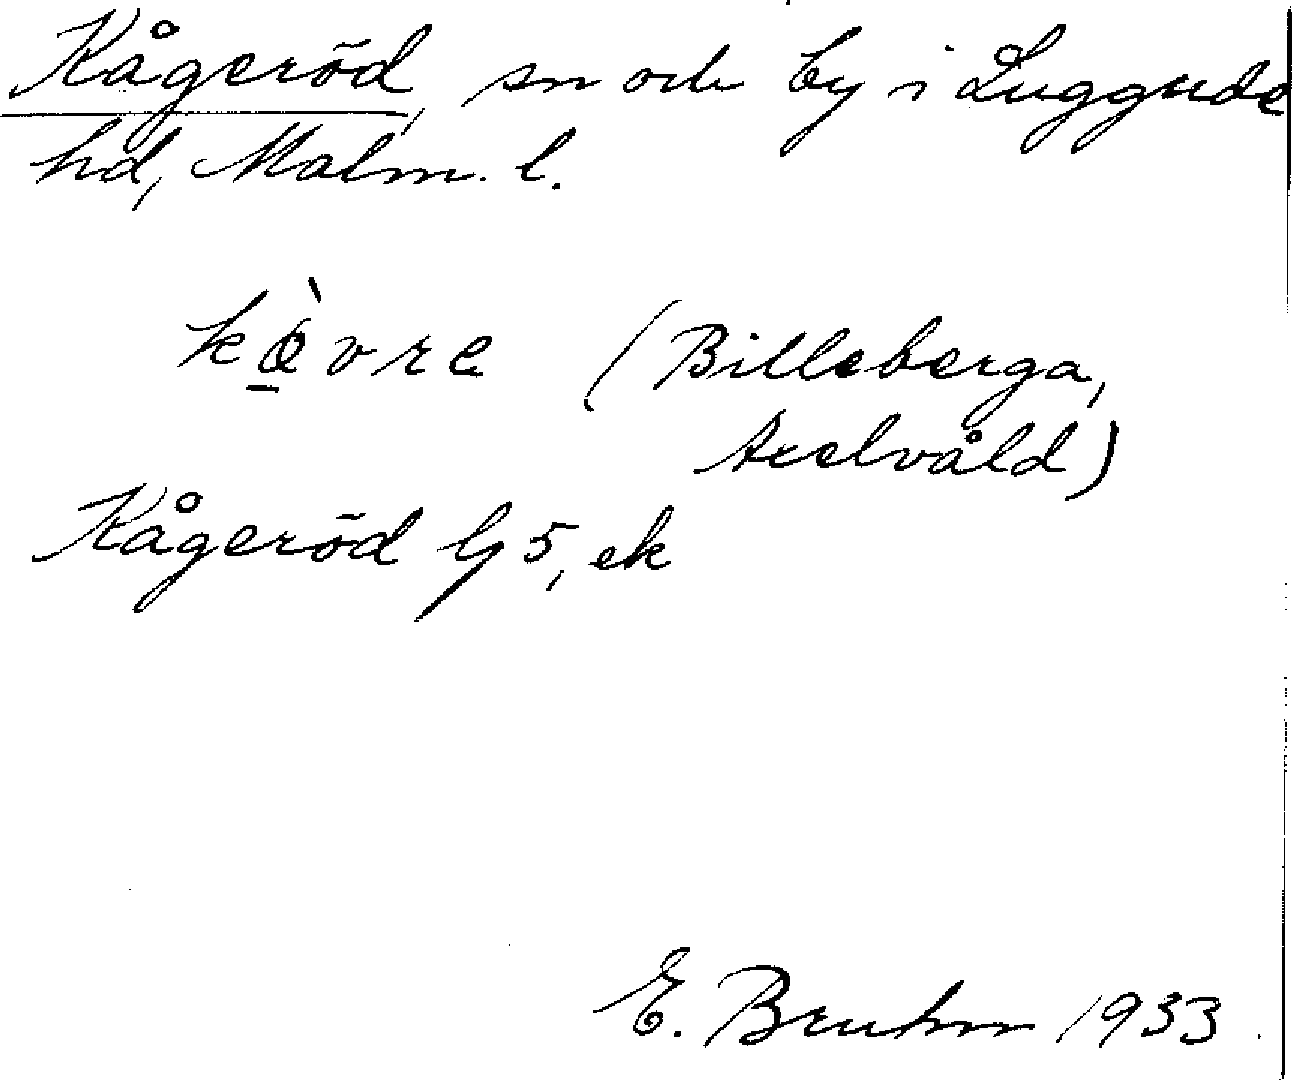 Kågeröd, sn och by i Luggude
hd, Malm. l.
(Billeberga,
Axelvåld)
Kågeröd G 5, ek
E. Bruhn 1933